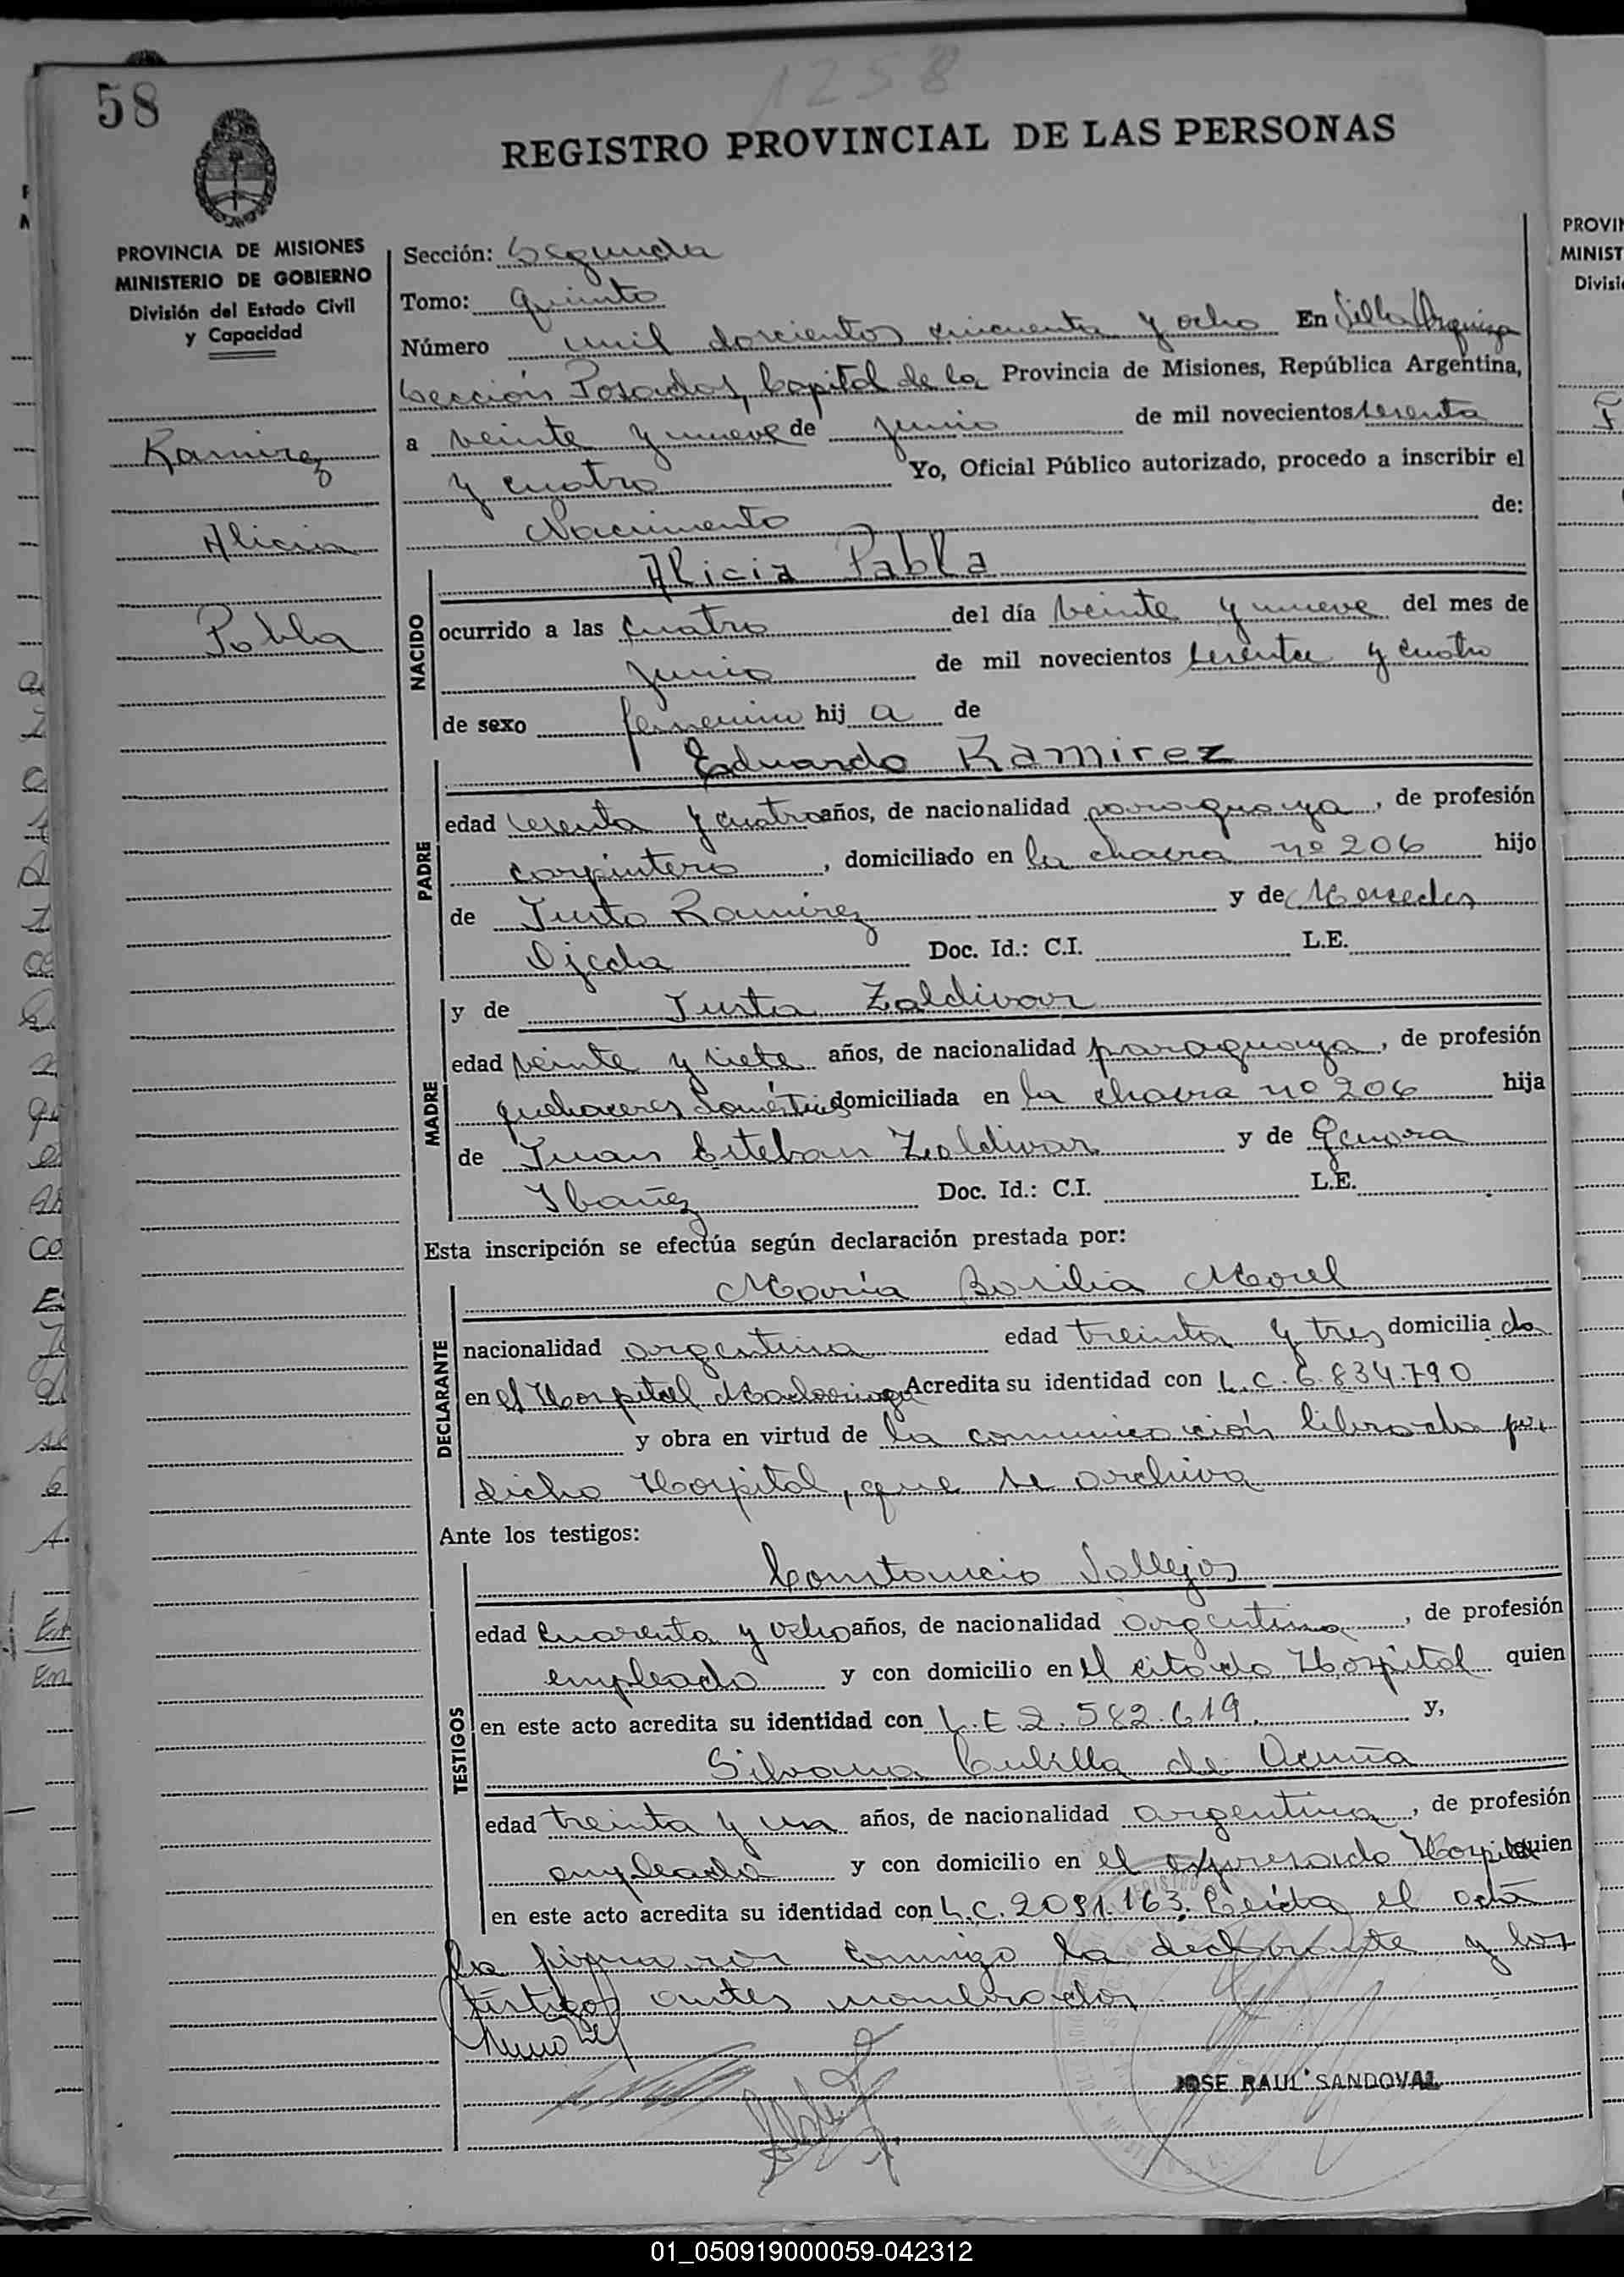 58
1258
REGISTRO PROVINCIAL DE LAS PERSONAS
PROVINCIA DE MISIONES
MINISTERIO DE GOBIERNO
División del Estado Civil
y Capacidad
Ramirez
Alicia
Pabla
Sección: Segunda
Tomo: Quinto
Número mil doscientos cincuenta y ocho En Villa Urquiza
Sección Posadas, Capital de la Provincia de Misiones, República Argentina,
a veinte y nueve de junio de mil novecientos sesenta
y cuatro Yo, Oficial Público autorizado, procedo a inscribir el
Nacimiento de:
NACIDO
Alicia Pabla
ocurrido a las cuatro del día veinte y nueve del mes de
junio de mil novecientos sesenta y cuatro
de sexo femenino hij a de
PADRE
Eduardo Ramirez
edad sesenta y cuatro años, de nacionalidad paraguaya, de profesión
carpintero, domiciliado en la chacra nº 206 hijo
de Justo Ramirez y de Mercedes
Ojeda Doc. Id.: C.I. L.E.
MADRE
y de Justa Zaldivar
edad veinte y siete años, de nacionalidad paraguaya, de profesión
quehaceres domésticos domiciliada en la chacra nº 206 hija
de Juan Esteban Zaldivar y de Genora
Ibañez Doc. Id.: C.I. L.E.
Esta inscripción se efectúa según declaración prestada por:
DECLARANTE
María Basilia Morel
nacionalidad argentina edad treinta y tres domicilia da
en el Hospital Madariaga Acredita su identidad con L.C. 6.834.790
y obra en virtud de la comunicación librada por
dicho Hospital, que se archiva
Ante los testigos:
TESTIGOS
Constancio Vallejos
edad cuarenta y ocho años, de nacionalidad argentina, de profesión
empleado y con domicilio en el citado Hospital quien
en este acto acredita su identidad con L.E. 2.582.619. y,
Silvana Cubilla de Acuña
edad treinta y un años, de nacionalidad argentina, de profesión
empleada y con domicilio en el expresado Hospital quien
en este acto acredita su identidad con L.C. 2091.163. Leída el acta
la firmaron conmigo la declarante y los
testigos antes nombrados
JOSE RAUL SANDOVAL
PROVIN
MINIST
Divisió
01_050919000059-042312